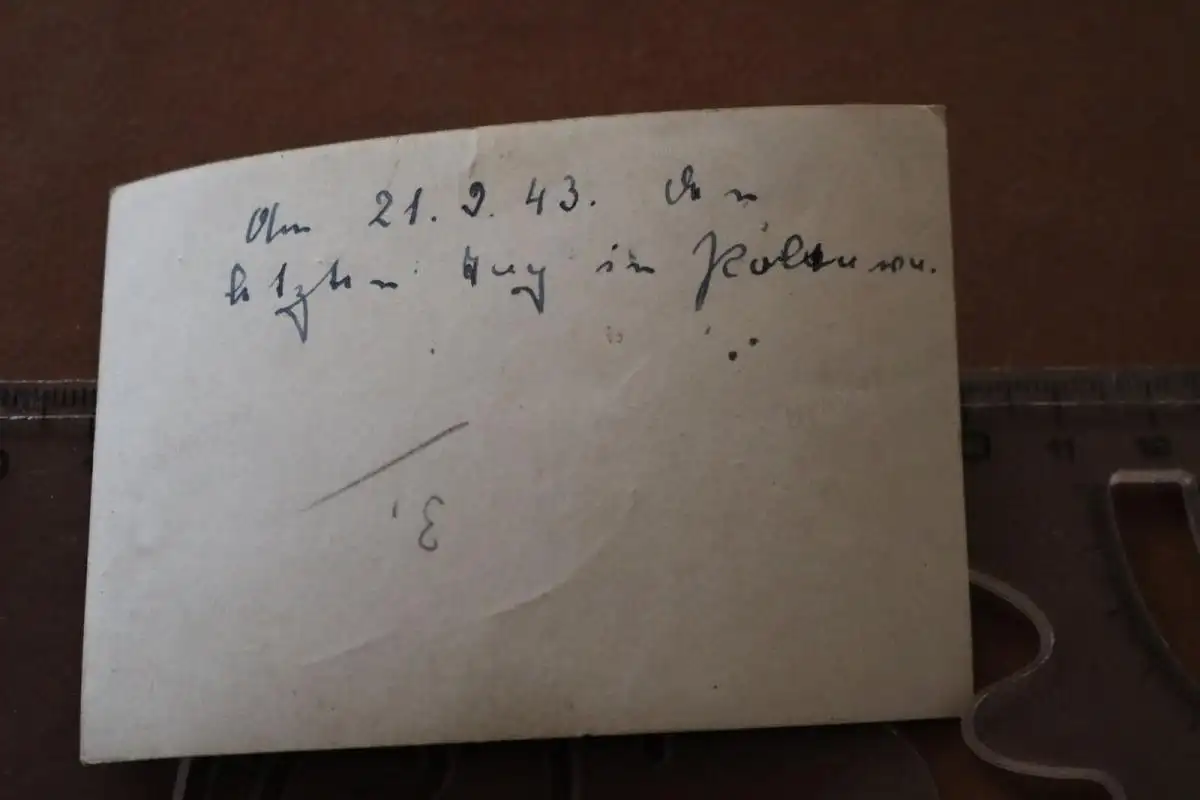 Am 21.9.43. den
letzten Tag in
3.
11 12